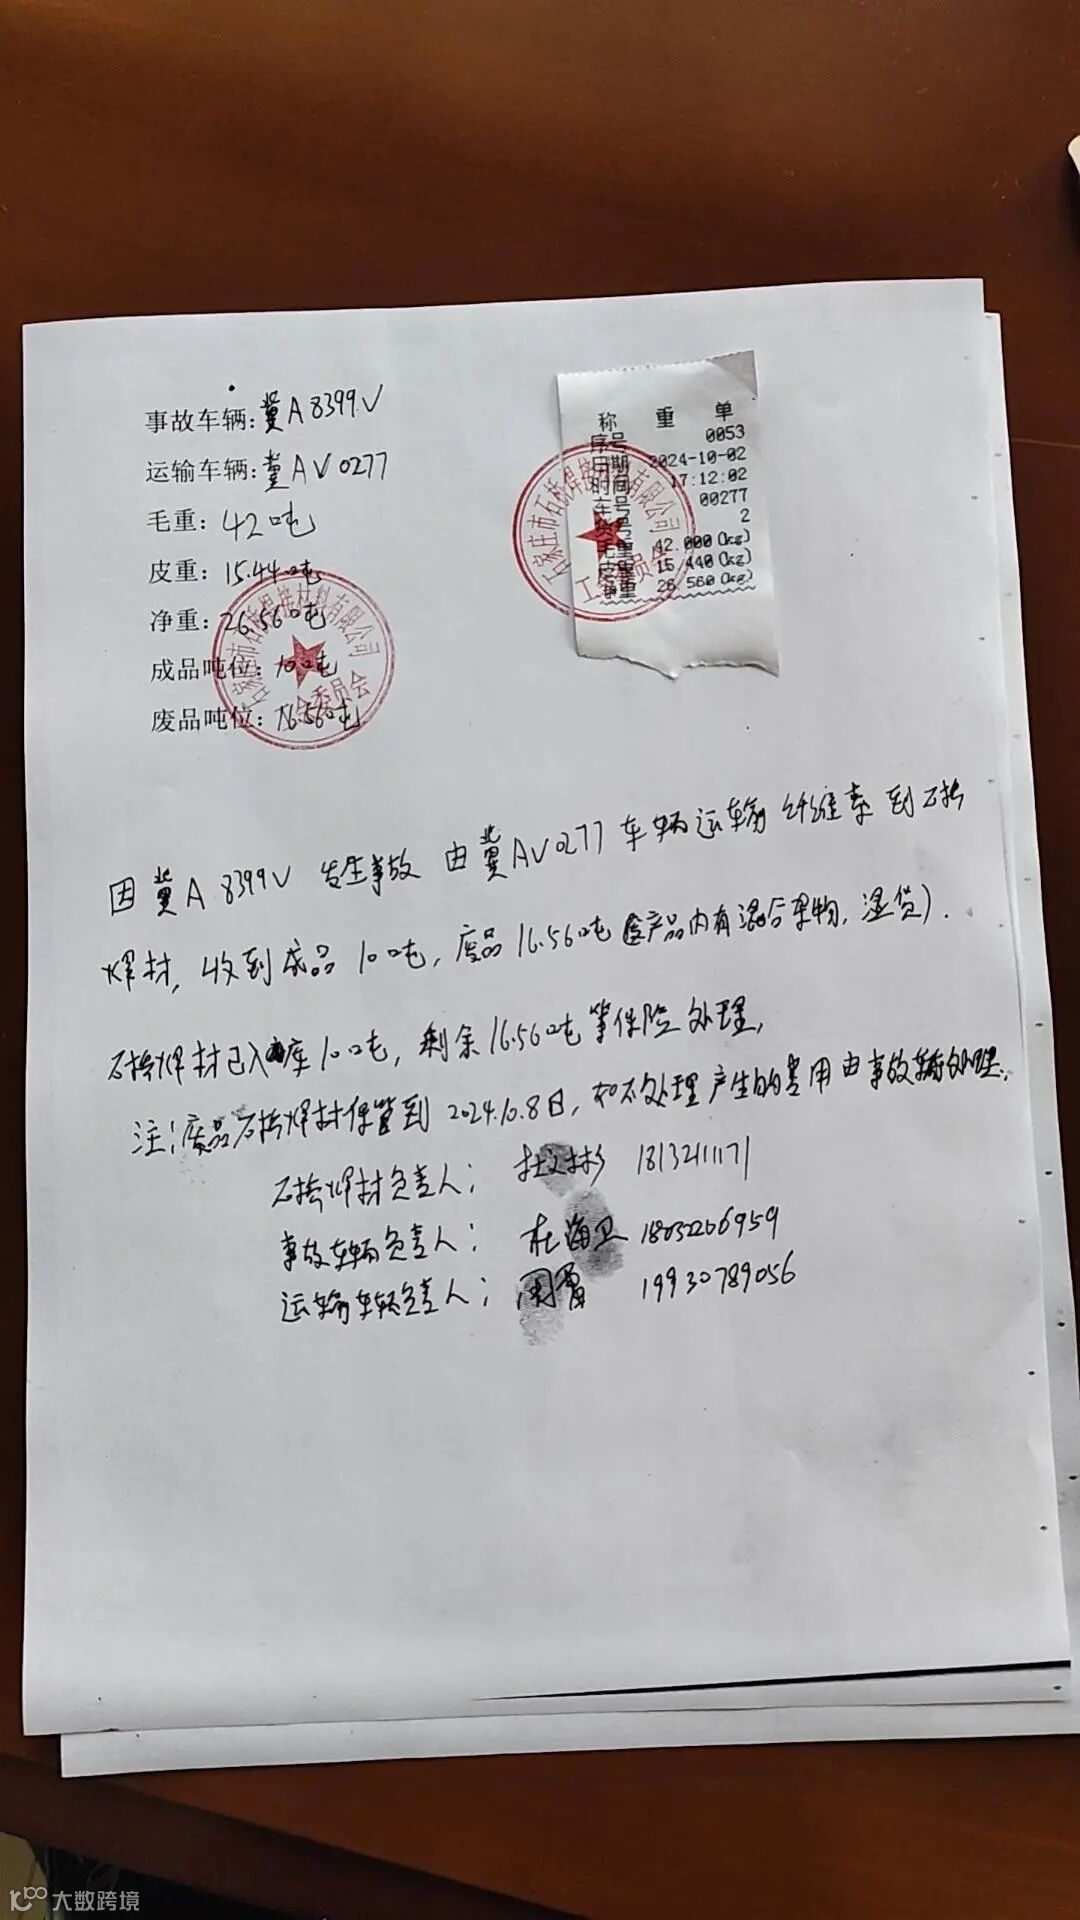 事故车辆:冀A8399V
运输车辆:冀AV0277
毛重:42吨
皮重:15.440吨
净重:26.560吨
成品吨位:10吨
废品吨位:16.560吨
称 重 单
序号 0053
日期 2024-10-02
时间 17:12:02
车号 00277
货号 2
毛重 42.000(kg)
皮重 15.440(kg)
净重 26.560(kg)
石家庄市石桥焊接材料有限公司
工会委员会
石家庄市石桥焊接材料有限公司
工会委员会
因冀A8399V 发生事故 由冀AV0277车辆运输纤维素到石桥
焊材,收到成品10吨,废品16.560吨(产品内有混合杂物,湿货).
石桥焊材已入库10吨,剩余16.560吨等保险处理,
注:废品石桥焊材保管到2024.10.8日,如不处理产生的费用由事故车辆处理.
石桥焊材负责人: 杜文彬 18132111171
事故车辆负责人: 杜海卫 18032206959
运输车辆负责人: 周 19930789056
大数跨境